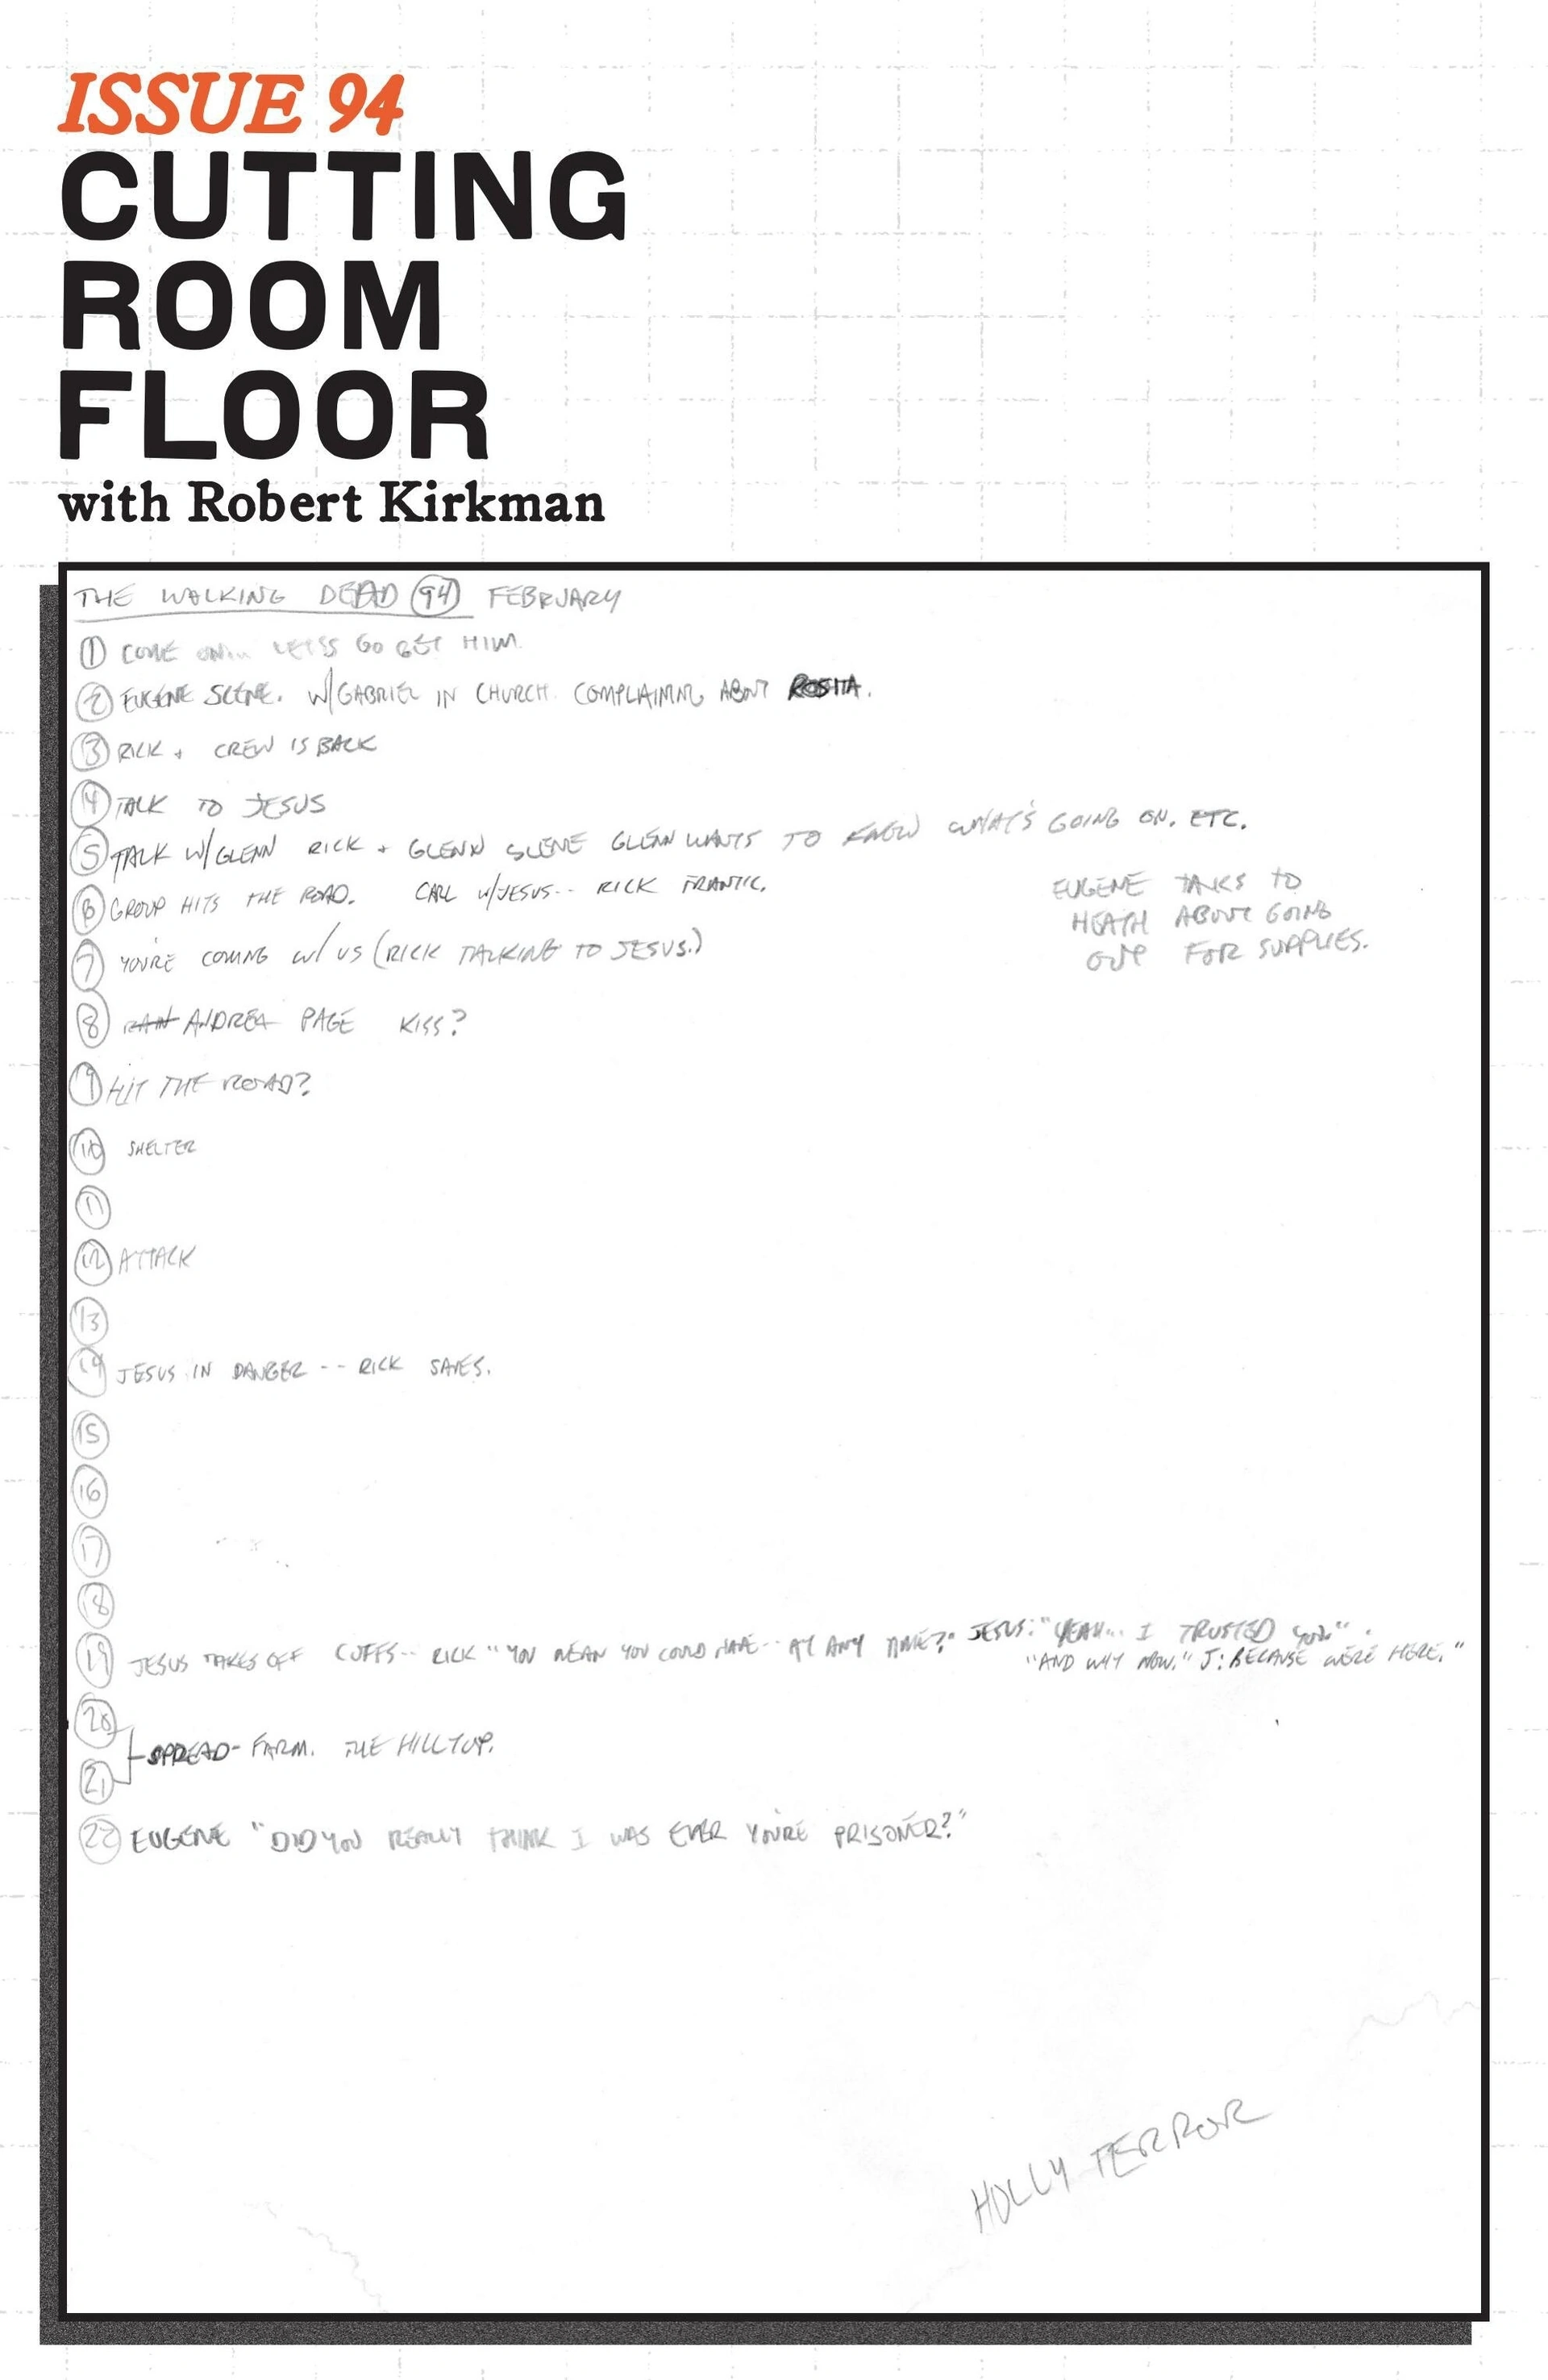 ISSUE 94
CUTTING
ROOM
FLOOR
with Robert Kirkman
THE WALKING DEAD 94 FEBRUARY
1 COME ON... LET'S GO GET HIM.
2 EUGENE SCENE. W/GABRIEL IN CHURCH. COMPLAINING ABOUT ROSITA.
3 RICK + CREW IS BACK
4 TALK TO JESUS
5 TALK W/GLENN RICK + GLENN SCENE GLENN WANTS TO KNOW WHAT'S GOING ON. ETC.
6 GROUP HITS THE ROAD. CARL W/JESUS-- RICK FRANTIC.
EUGENE TALKS TO
HEATH ABOUT GOING
OUT FOR SUPPLIES.
7 YOU'RE COMING W/ US (RICK TALKING TO JESUS.)
8 ANDREA PAGE KISS?
9 HIT THE ROAD?
10 SHELTER
11
12 ATTACK
13
14 JESUS IN DANGER -- RICK SAVES.
15
16
17
18
19 JESUS TAKES OFF CUFFS-- RICK "YOU MEAN YOU COULD HAVE-- AT ANY TIME?" JESUS: "YEAH... I TRUSTED YOU."
"AND WHY NOW." J: BECAUSE WE'RE HERE."
20
SPREAD- FARM. THE HILLTOP.
21
22 EUGENE "DID YOU REALLY THINK I WAS EVER YOU'RE PRISONER?"
HOLLY TERROR